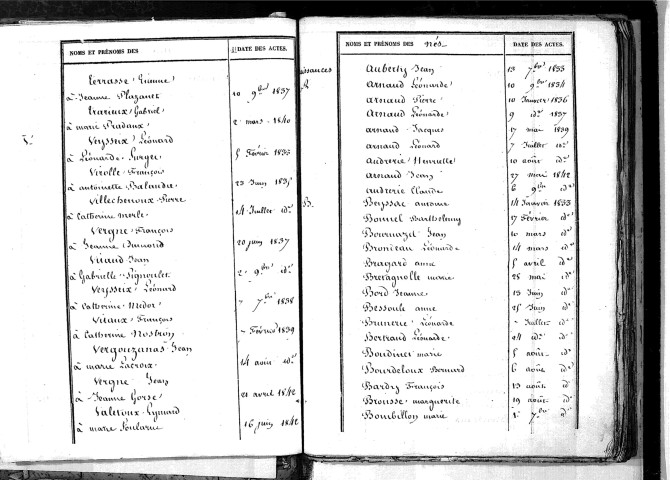 NOMS ET PRÉNOMS DES
DATE DES ACTES.
Terrasse Etienne
à Jeanne Plazanet 10 9bre 1837
Trarieux Gabriel
à marie Pradaux 2 mars 1840
V. Veysseix Léonard
à Léonarde 5 Février 1835
Virolle François
à antoinette Balandie 23 Juin 1835
Villechenoux Pierre
à Catherine merle 14 Juillet id.
Vergne François
à Jeanne Dumond 20 juin 1837
Viaud Jean
à Gabrielle Pignoulet 2 9bre id.
Veysseix Léonard
à Catherine Nidor 7bre 1838
Vitaux François
à Catherine Nostron Février 1839
Vergouzanas Jean
à marie Lacroix 14 août id.
Vergne Jean
à Jeanne Gorse 21 avril 1842
Valeroux Lynnard
à marie Soularue 16 juin 1842
NOMS ET PRÉNOMS DES nés
DATE DES ACTES.
naissances
A. Aubertiy Jean 13 7bre 1833
Arnaud Léonarde 10 9bre 1834
arnaud Pierre 10 Janvier 1836
Arnaud Léonarde 9 id. 1837
arnaud Jacques 17 mai 1839
arnaud Léonard 7 Juillet id.
Audrerie Henriette 10 août id.
arnaud Jean 27 mai 1842
audrerie Claude 6 9bre id.
B. Beyssac antoine 14 Janvier 1833
Bonnel Barthélemy 17 Février id.
Bournazel Jean 10 mars id.
Bronieau Léonarde 14 mars id.
Bragard anne 5 avril id.
Bretagnolle marie 28 mai id.
Bord Jeanne 13 Juin id.
Bessoule anne 25 Juin id.
Brunerie Léonarde Juillet id.
Bertrand Léonarde 24 id. id.
Boudinet marie 5 août id.
Bourdeloux Bernard 6 août id.
Bardry François 13 août id.
Brousse marguerite 19 août id.
Bombillon marie 1er 7bre id.